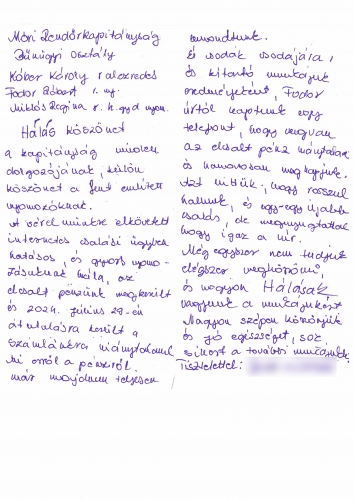 Móri Rendőrkapitányság
Bűnügyi Osztály
Kóber Károly r. alezredes
Fodor Róbert r.
Miklós Regina r. h.
Hálás köszönet
a kapitányság minden
dolgozójának, külön
köszönet a fent említett
nyomozóknak.
A vérei minkre elkövetett
internetes csalási ügyben
hatásos, és gyors nyomo-
zásuknak hála, az
elcsalt pénzünk megkerült
és 2024. június 27-én
átutalásra került a
számlánkra hiánytalanul
Mi erről a pénzről
már majdnem teljesen
lemondtunk.
És csodák csodájára,
és kitartó munkájuk
eredményeként, Fodor
úrtól kaptunk egy
telefont, hogy megvan
az elcsalt pénz hiánytalanul
és hamarosan megkapjuk.
Azt hittük, hogy rosszul
hallunk, és egy-egy újabb
csalás, de megnyugtattak
hogy igaz a hír.
Még egyszer nem tudjuk
elégszer megköszönni,
és nagyon Hálásak
vagyunk a munkájukért
Nagyon szépen köszönjük
és jó egészséget, sok
sikert a további munkájukhoz
Tisztelettel: